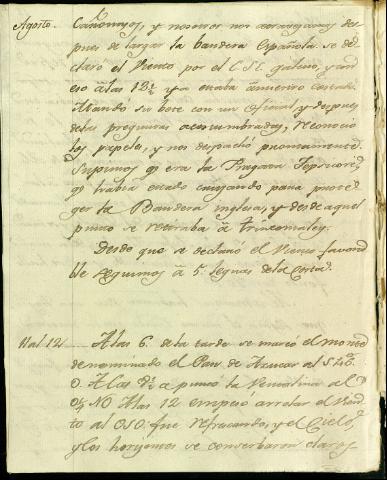 Agosto. Cañonasos, y nosotros nos atracamos des
pues de largar la bandera Española. se de
claró el Viento por el ESE galeno, y
eso a las 12½ ya estaba a nuestro costado
Mandó su bote con un Oficial, y despues
delas preguntas acostumbradas, reconocio
los papeles, y nos despachó prontamente.
Supimos qe era la Fragata
qe habia estado cruzando para prote
ger la Bandera inglesa, y desde aquel
punto se retiraba à Trinconmaley.
Desde que se declaró el Viento favora
ble seguimos à 5. leguas dela Costa.
Al 12 A las 6. de la tarde se marcó el monte
denominado el Pan de Azucar al
O. A las en punto la Ventolina al
O¼NO A las 12 empesó arrolar el Vien
to al OSO. fue refrescando, y el Cielo,
y los horisontes se conserbaron claros